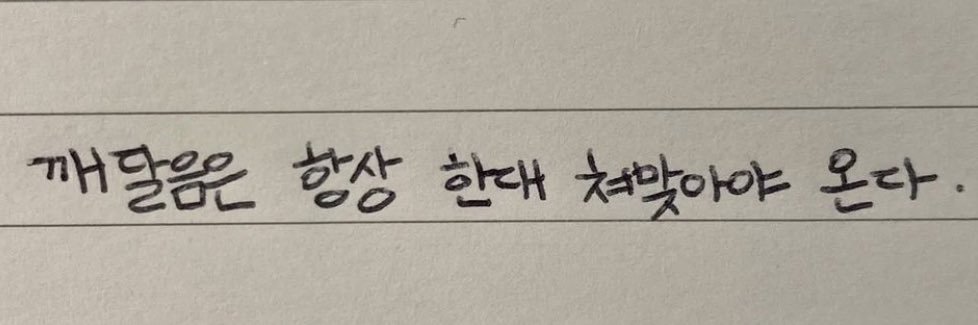 깨달음은 항상 한대 쳐맞아야 온다.